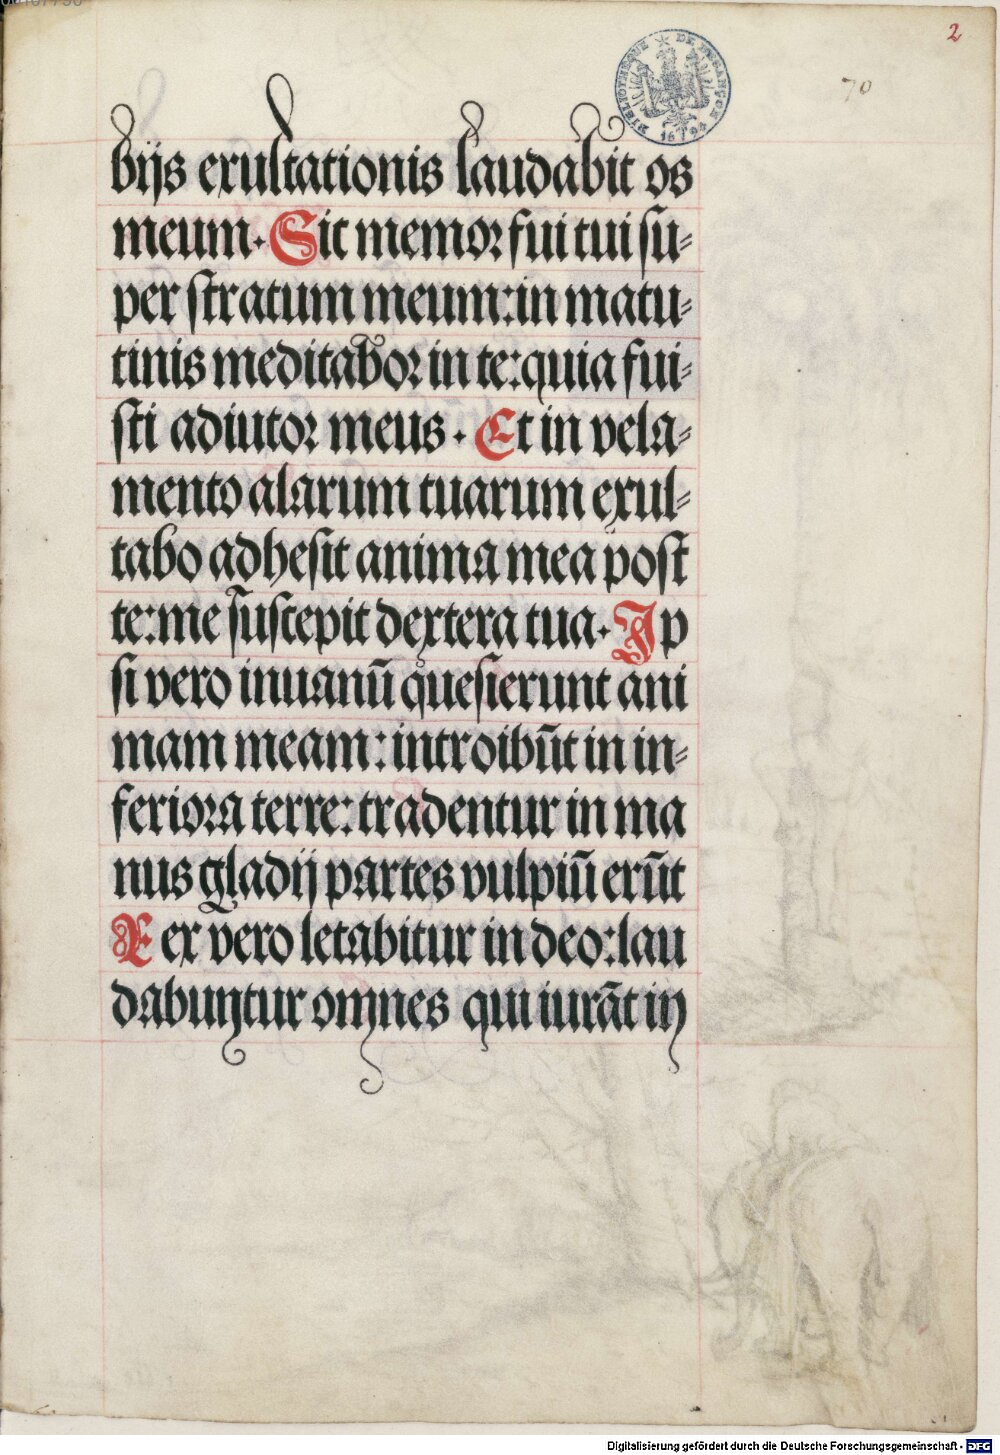 2
70
BIBLIOTHEQUE DE BESANÇON 1694
bijs exultationis laudabit os
meum. Sic memor fui tui su⸗
per stratum meum: in matu⸗
tinis meditabor in te: quia fui⸗
sti adiutor meus. Et in vela⸗
mento alarum tuarum exul⸗
tabo adhesit anima mea post
te: me suscepit dextera tua. Ip
si vero inuanū quesierunt ani
mam meam: introibūt in in⸗
feriora terre: tradentur in ma
nus gladij partes vulpiū erūt
Rex vero letabitur in deo: lau
dabuntur omnes qui iurāt in
Digitalisierung gefördert durch die Deutsche Forschungsgemeinschaft - DFG